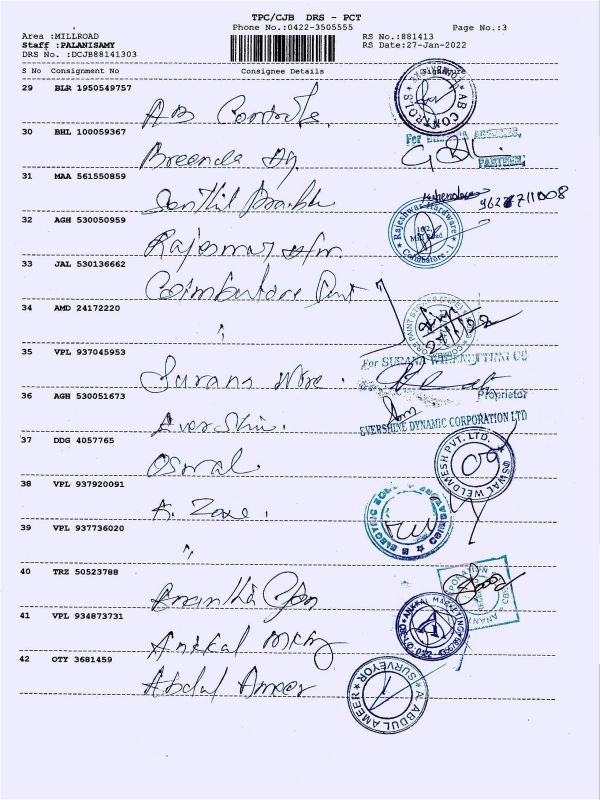 TPC/CJB DRS - PCT
Phone No.:0422-3505555 Page No.:3
Area :MILLROAD RS No.:881413
Staff :PALANISAMY RS Date:27-Jan-2022
DRS No. :DCJB88141303
S No Consignment No Consignee Details Signature
29 BLR 1950549757
AB Controls.
AB CONTROLS
30 BHL 100059367
For AGENCIES,
Breenda Ag
PARTNER.
31 MAA 561550859
Senthil Prabhu
32 AGH 530050959
Rajeshwar Hardware
162,
Mill Road
Coimbatore - 1
Rajeswar H/w.
33 JAL 530136662
Coimbatore Paint
34 AMD 24172220
"
35 VPL 937045953
For SURANA WIRENETTING CO
Surana Wire.
Proprietor
36 AGH 530051673
EVERSHINE DYNAMIC CORPORATION LTD
Evershin.
37 DDG 4057765
Oswal.
OSWAL WELDMESH PVT. LTD.
38 VPL 937920091
A. Zone.
39 VPL 937736020
"
40 TRZ 50523788
Anantha Cpn
41 VPL 934873731
ANKKAL MARKETING
Ankkal Mktg
42 OTY 3681459
Abdul Ameer
A. ABDUL AMEER
SURVEYOR